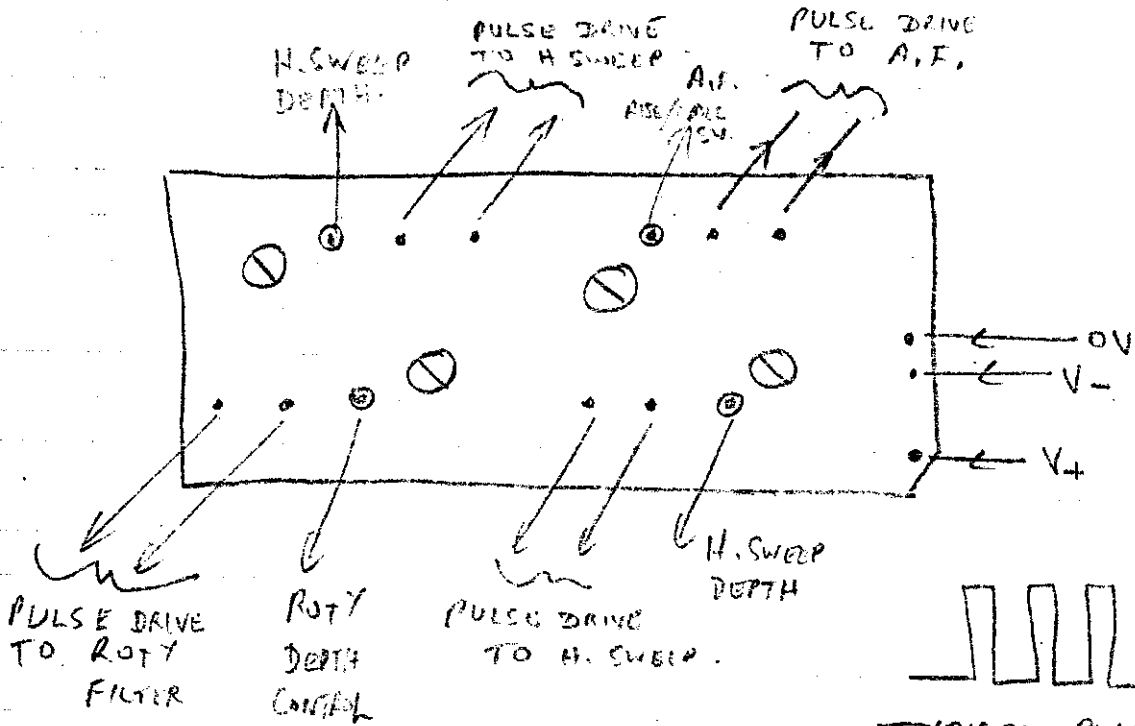 H. SWEEP
DEPTH.
PULSE DRIVE
TO H SWEEP
A.F.
RISE/FALL
SY.
PULSE DRIVE
TO A.F.
0V
V-
V+
PULSE DRIVE
TO ROTY
FILTER
ROTY
DEPTH
CONTROL
PULSE DRIVE
TO H. SWEEP.
H. SWEEP
DEPTH